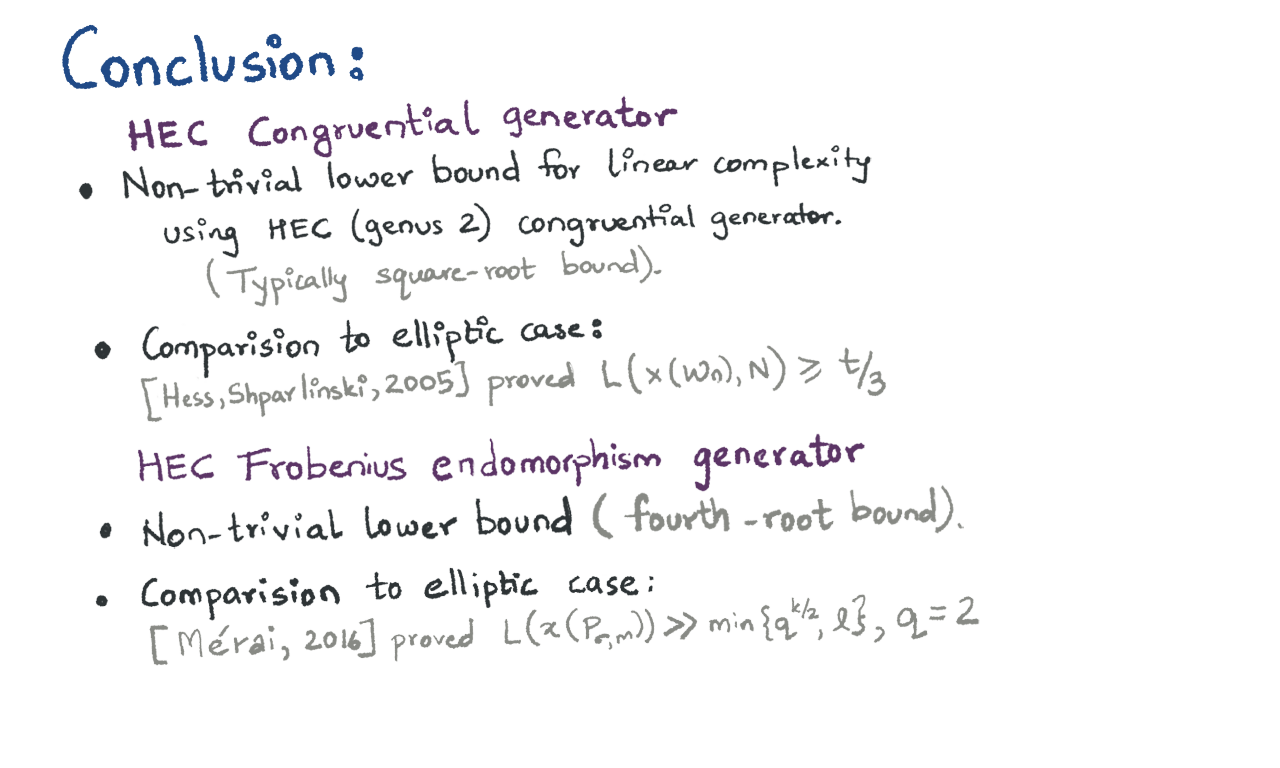 Conclusion:
HEC Congruential generator
• Non-trivial lower bound for linear complexity
using HEC (genus 2) congruential generator.
(Typically square-root bound).
• Comparision to elliptic case:
[Hess, Shparlinski, 2005] proved L(x(Wn), N) ⩾ t/3
HEC Frobenius endomorphism generator
• Non-trivial lower bound (fourth-root bound).
• Comparision to elliptic case:
[Mérai, 2016] proved L(x(P_{σ,m})) ≫ min{q^{k/2}, ℓ}, q = 2